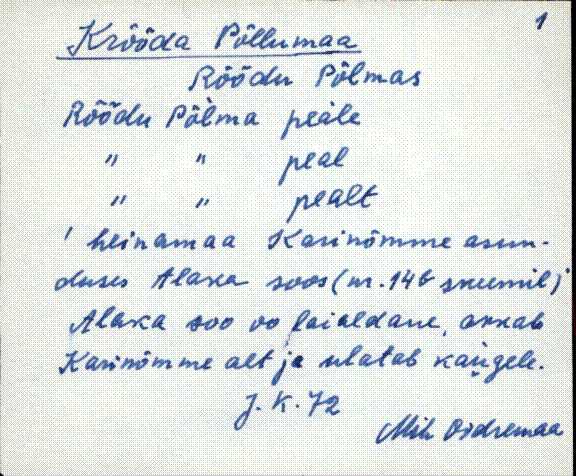 1
Krõõda Põllumaa
Rõõdu Põlmas
Rõõdu Põlma peale
" " peal
" " pealt
' heinamaa Karinõmme asun-
duses Alaka soos (nr. 146 skeemil)
Alaka soo oo laialdane, akkab
Karinõmme alt ja ulatab kaugele.
J. K. 72
Mih Oidremaa